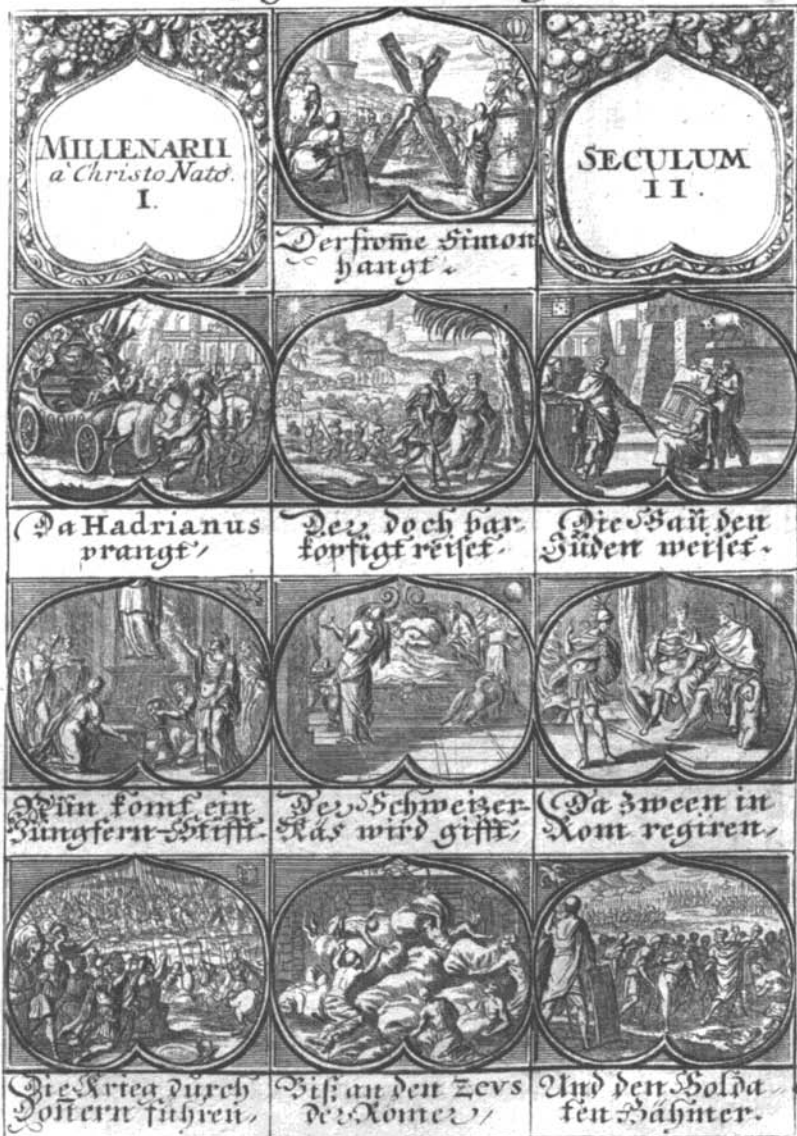 MILLENARII
a Christo Nato.
I.
SECULUM
II.
Der from̅e Simon
hangt,
Da Hadrianus
prangt,
Der doch bar
kopfigt reiset.
Die Bau den
Jüden weiset.
Nün komt ein
Jungfern-Stifft.
Der Schweizer-
Käs wird gifft,
Da zween in
Rom regiren,
Die Krieg durch
Don̅ern führen,
Biß an den Zevs
der Römer,
Und den Solda
ten